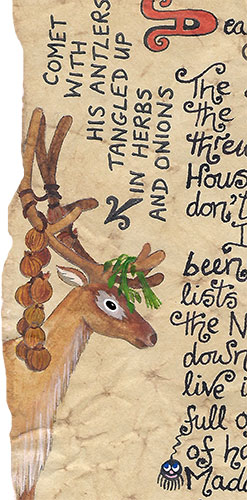 COMET
WITH
HIS ANTLERS
TANGLED UP
IN HERBS
AND ONIONS
The
the
threw
don't
been
lists
the N
down
live
full
of